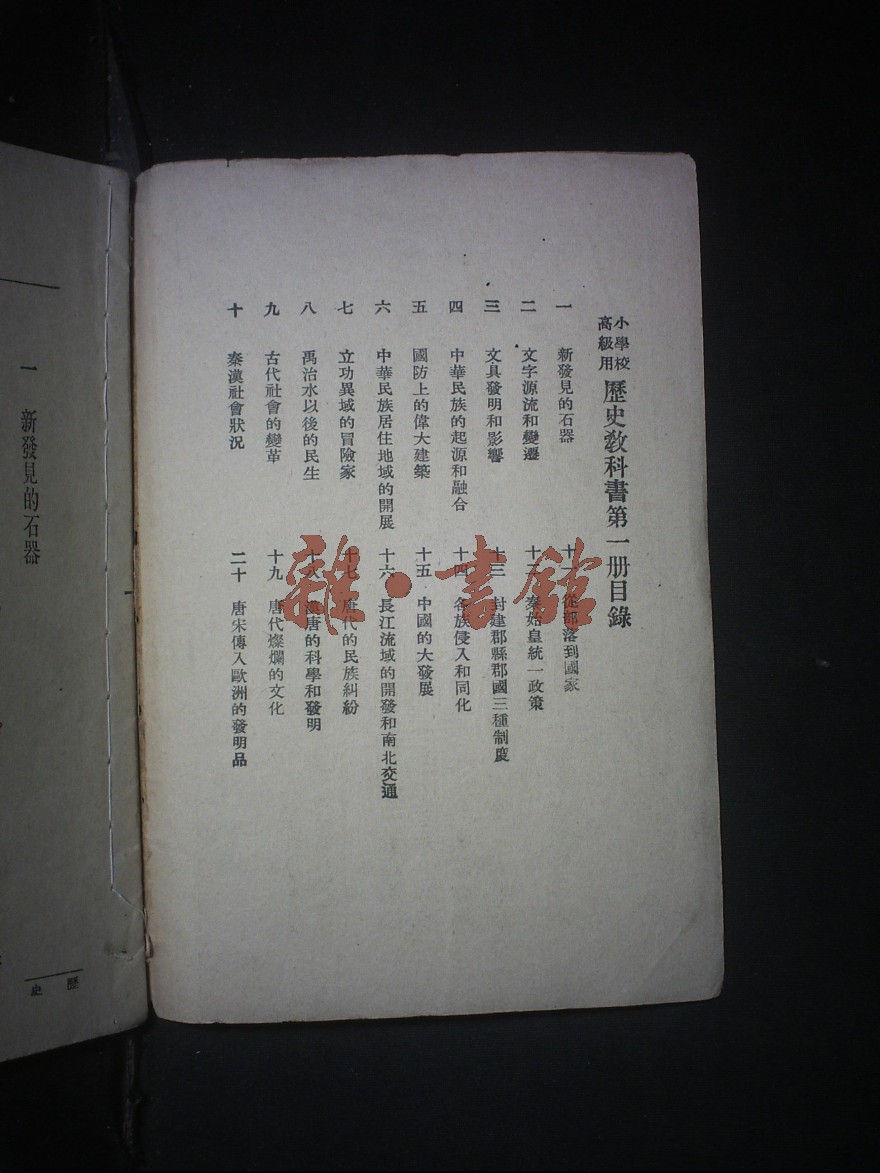 小學校
高級用
歷史敎科書第一册目錄
一 新發見的石器
二 文字源流和變遷
三 文具發明和影響
四 中華民族的起源和融合
五 國防上的偉大建築
六 中華民族居住地域的開展
七 立功異域的冒險家
八 禹治水以後的民生
九 古代社會的變革
十 秦漢社會狀況
十一 從部落到國家
十二 秦始皇統一政策
十三 封建郡縣郡國三種制度
十四 各族侵入和同化
十五 中國的大發展
十六 長江流域的開發和南北交通
十七 唐代的民族糾紛
十八 漢唐的科學和發明
十九 唐代燦爛的文化
二十 唐宋傳入歐洲的發明品
雜·書館
一 新發見的石器
歷史